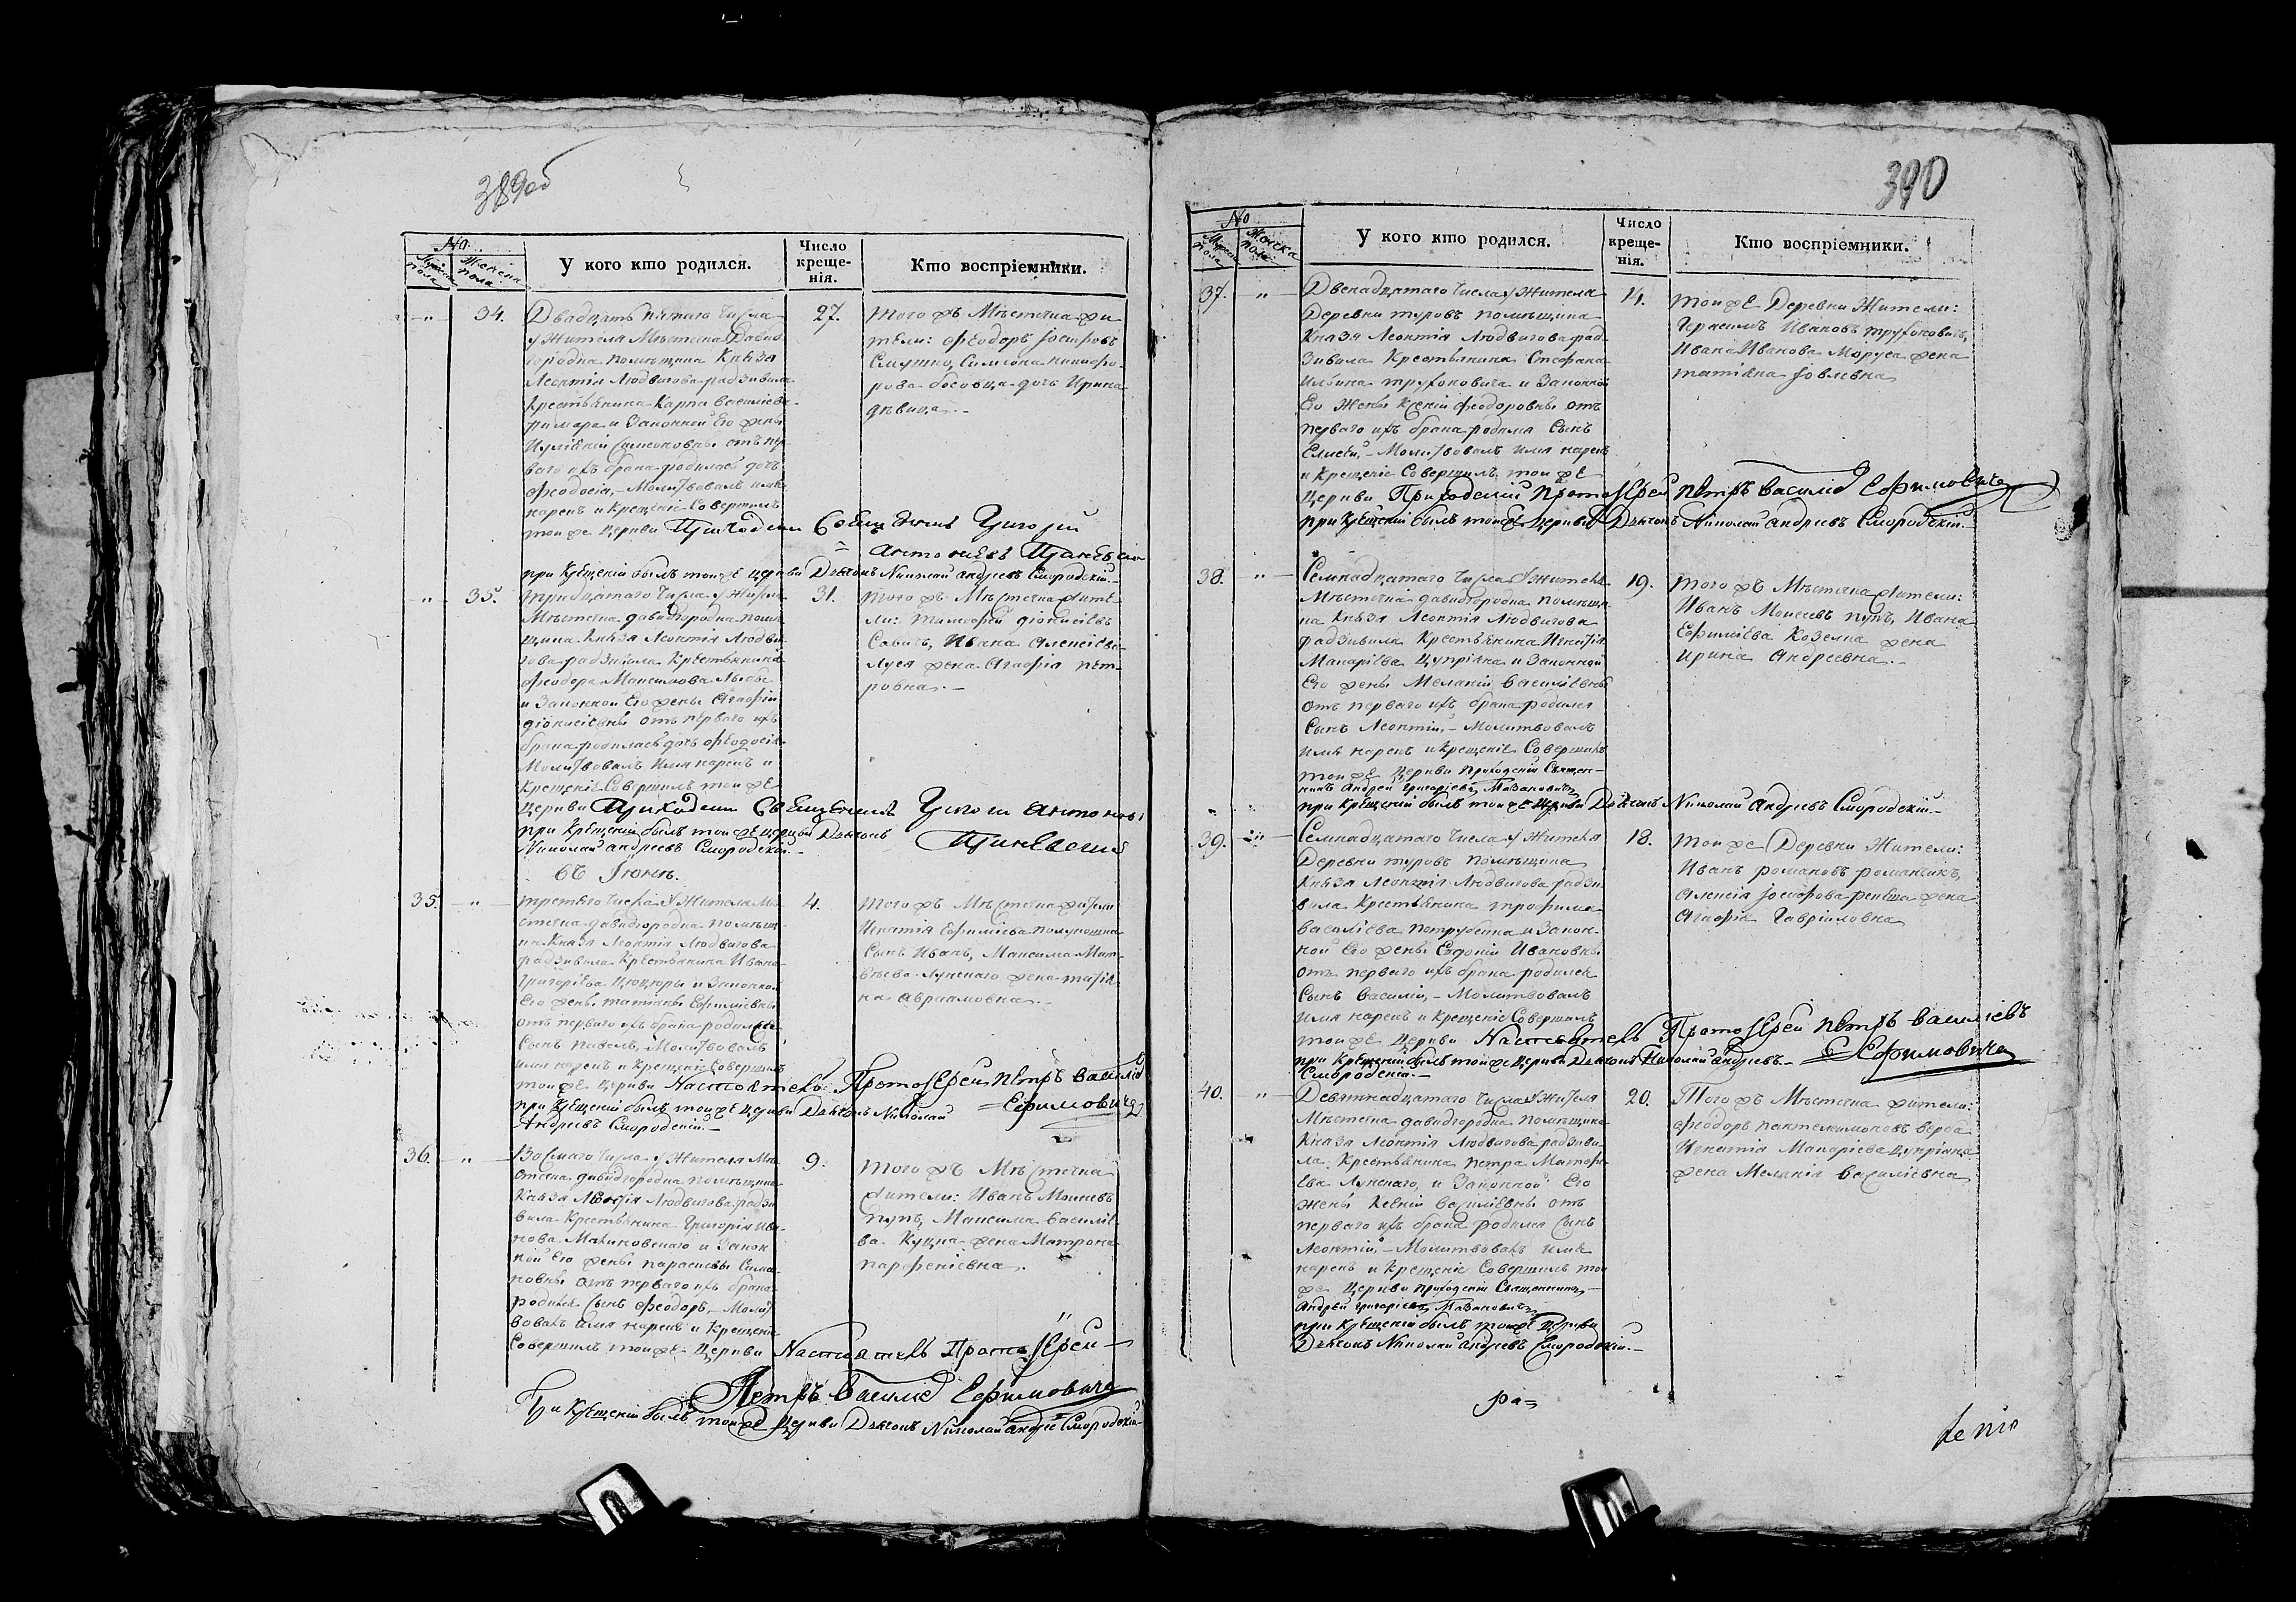 389об
№
Мужеска пола
Женска пола
У кого кто родился.
Число креще-
нія.
Кто воспріемники.
" 34.
Двадцать пятаго числа
у Жителя Мѣстечка Давид
городка помѣщика Князя
Леонтія Людвигова радзивила
Крестьянина Карпа василіева
и Законной Его жены
Симеоновны отъ пер
ваго ихъ брака родилась дочь
Феодосія, – Молитвовалъ имя
нарекъ и крещеніе Совершилъ
той же Церкви Приходскій Священникъ Григорій
Антоніевъ
при Крещеніи былъ той же церкви Дьяконъ Николай андреевъ Смородскій. –
27.
того жъ Мѣстечка жи
тели: Феодоръ Іосифовъ
Смушко, Симеона никифо-
рова босовца дочь Ирина
дѣвица. –
" 35.
тридцатаго числа у Жителя
Мѣстечка давидгородка помѣ
щика Князя Леонтія Людви
гова радзивила Крестьянина
Феодора Максимова
и Законной Его жены Агафіи
діонисіевны отъ перваго ихъ
брака родилась дочь Феодосія
Молитвовалъ имя нарекъ и
Крещеніе Совершилъ той же
Церкви Приходскій Священникъ Григорій антоніевъ
при Крещеніи былъ той же церкви Дьяконъ
Николай андреевъ Смородскій. –
31.
того жъ Мѣстечка жите-
ли: тимофей діонисіевъ
Савичъ, Ивана Алексіева
жена Агафія пет-
ровна. –
въ Іюнѣ.
35. "
третяго числа у Жителя Мѣ
стечка давидгородка помѣщи
ка Князя Леонтія Людвигова
радзивила Крестьянина Ивана
Григоріева и Законной
Его жены татіаны Ефиміевны
отъ перваго ихъ брака родился
Сынъ павелъ, Молитвовалъ
имя нарекъ и крещеніе Совершилъ
той же церкви Настоятель Протоіерей петръ василіевъ
Ефимовичъ
при Крещеніи былъ той же церкви Дьяконъ Николай
Андреевъ Смородскій. –
4.
того жъ Мѣстечка жители
Игнатія Ефиміева полукошка
Сынъ Иванъ, Максима Мат-
вѣева Лунскаго жена татія
на авраамовна. –
36. "
Восмаго числа у Жителя Мѣ
стечка давидгородка помѣщика
Князя Леонтія Людвигова радзи
вила Крестьянина Григорія ива-
нова Малиновскаго и Закон
ной Его жены параскевы Симе
новны отъ перваго ихъ брака
родился Сынъ Феодоръ, – Молит
вовалъ имя нарекъ и Крещеніе
Совершилъ той же Церкви Настоятель Протоіерей –
Петръ василіевъ Ефимовичъ
При Крещеніи былъ той же Церкви Дьяконъ Николай андреевъ Смородскій
9.
того жъ Мѣстечка
жители: Иванъ Моисеевъ
пупъ, Максима василіе
ва Куцка жена Матрона
парфеніевна.
390
№
Мужеска пола
Женска пола
У кого кто родился.
Число
креще-
нія.
Кто воспріемники.
37. "
Двенадцатаго числа у Жителя
Деревни туровъ помѣщика
Князя Леонтія Людвигова рад
зивила Крестьянина Стефана
Ильина труховича и Законной
Его Жены Ксеніи Феодоровны отъ
перваго ихъ брака родился Сынъ
Елисей, – Молитвовалъ имя нарекъ
и крещеніе Совершилъ той же
Церкви Приходскій протоіерей петръ василіевъ Ефимовичъ
при Крещеніи былъ той же церкви Дьяконъ Николай андреевъ Смородскій. –
14.
той же Деревни Жители:
Герасимъ Ивановъ труховичъ,
Ивана Иванова Моруса жена
татіана Іовлевна
38. "
Семнадцатаго числа у жителя
Мѣстечка давидгородка помѣщи-
ка Князя Леонтія Людвигова
радзивила Крестьянина Игнатія
Макаріева Цупріяка и Законной
Его жены Меланіи василіевны
отъ перваго ихъ брака родился
Сынъ Леонтій, – Молитвовалъ
имя нарекъ и крещеніе Совершилъ
той же Церкви приходскій Священ-
никъ Андрей григоріевъ Мазановичъ
при Крещеніи былъ той же церкви Дьяконъ Николай андреевъ Смородскій. –
19.
того жъ Мѣстечка жители:
Иванъ Моисеевъ пупъ, Ивана
Ефиміева Козела жена
ирина Андреевна. –
39. "
Семнадцатаго числа у Жителя
Деревни туровъ помѣщика
Князя Леонтія Людвигова радзи
вила Крестьянина трофима
василіева петрусика и Закон-
ной Его жены Евдокіи Ивановны
отъ перваго ихъ брака родился
Сынъ василій, – Молитвовалъ
имя нарекъ и Крещеніе Совершилъ
той же Церкви Настоятель Протоіерей петръ василіевъ
Ефимовичъ
при Крещеніи былъ той же Церкви Дьяконъ Николай андреевъ. –
Смородскій. –
18.
той же Деревни Жители:
Иванъ романовъ романчикъ,
алексія Іосифова жена
Агафія Гавріиловна
40. "
Девятнадцатаго числа у Жителя
Мѣстечка давидгородка помѣщика
Князя Леонтія Людвигова радзиви
ла Крестьянина петра Матфе
ева Лунскаго, и Законной Его
жены Ксеніи василіевны отъ
перваго ихъ брака родился Сынъ
Леонтій, – Молитвовалъ имя
нарекъ и крещеніе Совершилъ той
же Церкви приходскій Священникъ –
андрей григоріевъ Мазановичъ
при Крещеніи былъ той же Церкви
Дьяконъ Николай андреевъ Смородскій. –
20.
Того жъ Мѣстечка жители:
Феодоръ пантелимоновъ верба
Игнатія Макаріева цупріяка
жена Меланія василіевна
ра=